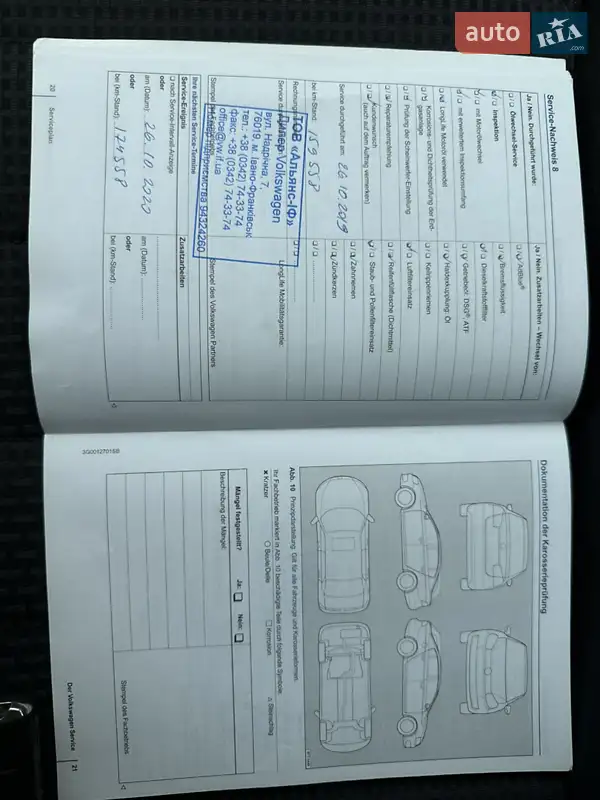 auto RIA.com
Service-Nachweis 8
Ja / Nein: Durchgeführt wurde:
Ölwechsel-Service
Inspektion
mit Motorölwechsel
mit erweitertem Inspektionsumfang
LongLife Motoröl verwendet
Korrosions- und Dichtheitsprüfung der Erdgasanlage
Prüfung der Scheinwerfer-Einstellung
Reparaturempfehlung
Kundenwunsch
(auch auf dem Auftrag vermerken)
Service durchgeführt am: 26.10.2019
bei km-Stand: 159 558
Ja / Nein: Zusatzarbeiten – Wechsel von:
AdBlue®
Bremsflüssigkeit
Dieselkraftstofffilter
Getriebeöl: DSG®, ATF
Haldexkupplung: Öl
Keilrippenriemen
Luftfiltereinsatz
Reifenfüllflasche (Dichtmittel)
Staub- und Pollenfiltereinsatz
Zahnriemen
Zündkerzen
LongLife Mobilitätsgarantie:
Stempel des Volkswagen Partners
ТОВ «Альянс-ІФ»
Дилер Volkswagen
вул. Надрічна, 7,
76019, м. Івано-Франківськ
тел.: +38 (0342) 74-33-74
факс: +38 (0342) 74-33-74
office@vw.if.ua
Ihre nächsten Service-Termine
Service-Ereignis
nach Service-Intervall-Anzeige
oder
am (Datum): 26.10.2020
oder
bei (km-Stand): 174558
Zusatzarbeiten
am (Datum):
oder
bei (km-Stand):
20 Serviceplan
3G0012701SB
Dokumentation der Karosserieprüfung
Abb. 10 Prinzipdarstellung: Gilt für alle Fahrzeuge und Karosserieformen.
Ihr Fachbetrieb markiert in Abb. 10 beschädigte Teile durch folgende Symbole:
× Kratzer ○ Beule/Delle □ Korrosion △ Steinschlag
Mängel festgestellt? Ja: Nein:
Beschreibung der Mängel:
Stempel des Fachbetriebs
Der Volkswagen Service 21